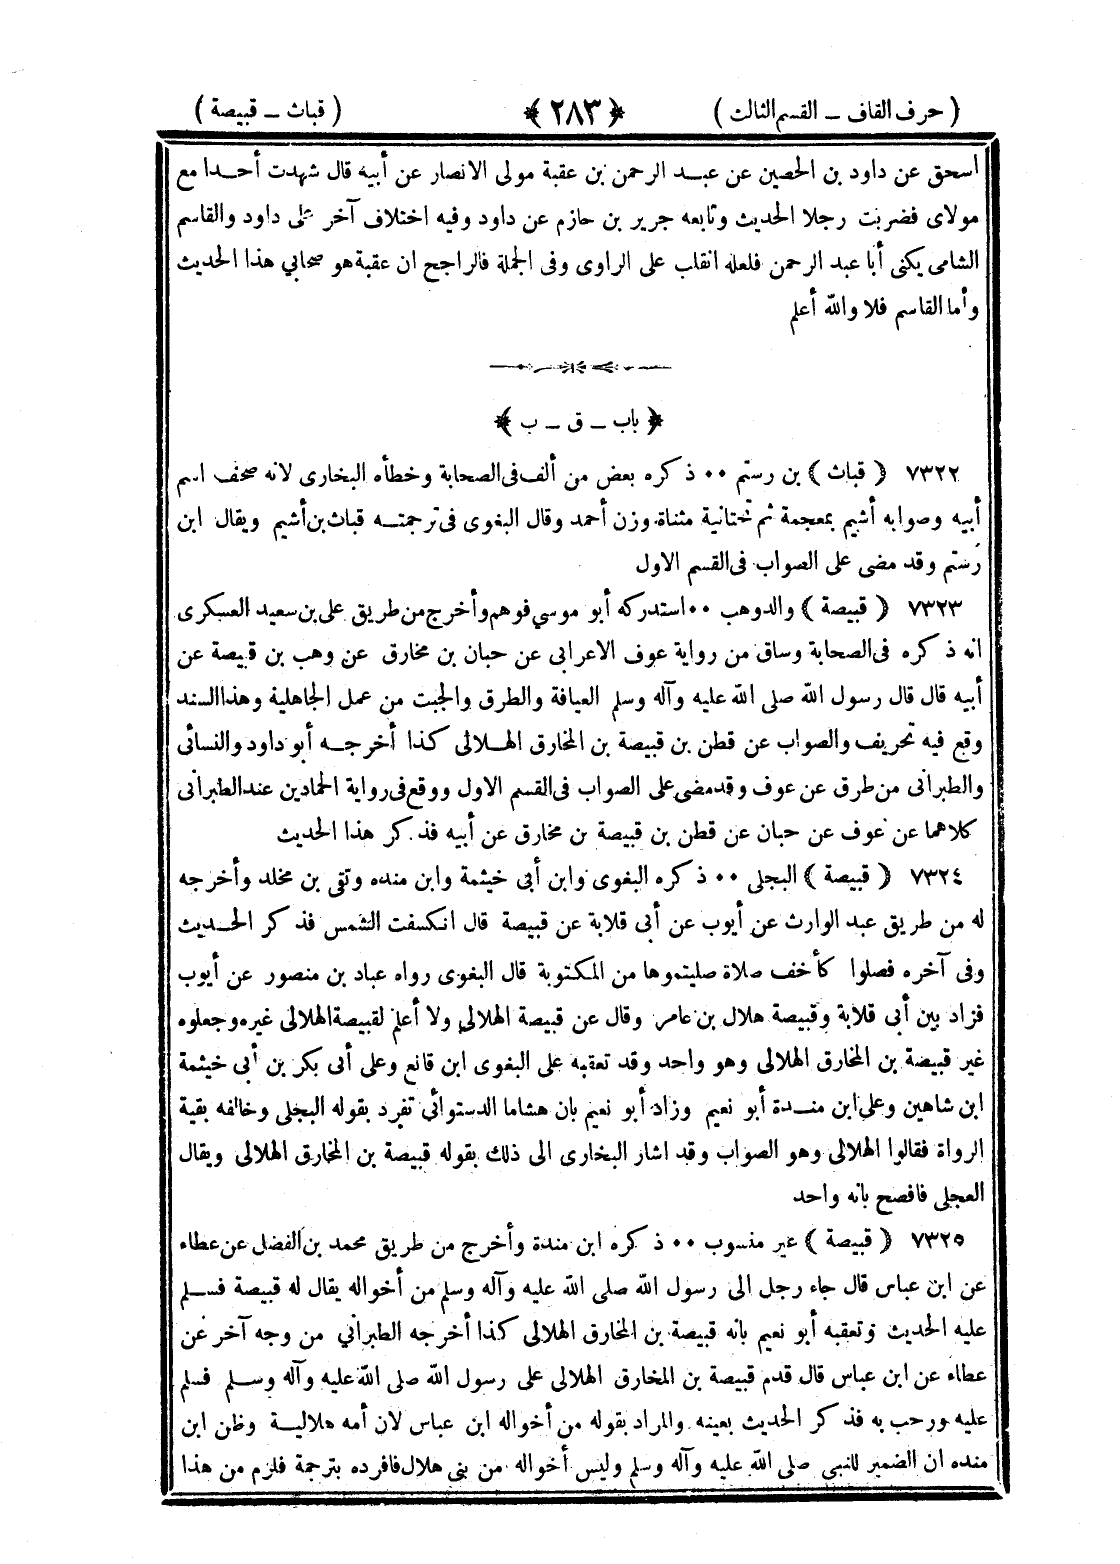 ( حرف القاف ــ القسم الثالث ) ﴿ ٢٨٣ ﴾ ( قباث ــ قبيصة )
اسحق عن داود بن الحصين عن عبـد الرحمن بن عقبة مولى الانصار عن أبيه قال شهدت أحـدا مع
مولاى فضربت رجلا الحديث وتابعه جرير بن حازم عن داود وفيه اختلاف آخر على داود والقاسم
الشامى يكنى أبا عبد الرحمن فلعله انقلب على الراوى وفى الجملة فالراجح ان عقبة هو صحابي هذا الحديث
وأما القاسم فلا والله أعلم
﴿ باب ــ ق ــ ب ﴾
٧٣٢٢ ﴿ قباث ﴾ بن رستم ٠٠ ذكره بعض من ألف فى الصحابة وخطأه البخارى لانه صحف اسم
أبيه وصوابه أشيم بمعجمة ثم تحتانية مثناة وزن أحمد وقال البغوى فى ترجمتـه قباث بن أشيم ويقال ابن
رستم وقد مضى على الصواب فى القسم الاول
٧٣٢٣ ﴿ قبيصة ﴾ والدوهب ٠٠ استدركه أبو موسي فوهم وأخرج من طريق على بن سعيد العسكرى
انه ذكره فى الصحابة وساق من رواية عوف الاعرابى عن حبان بن مخارق عن وهب بن قبيصة عن
أبيه قال قال رسول الله صلى الله عليه وآله وسلم العيافة والطرق والجبت من عمل الجاهلية وهذا السند
وقع فيه تحريف والصواب عن قطن بن قبيصة بن المخارق الهـلالى كذا أخرجـه أبو داود والنسائى
والطبرانى من طرق عن عوف وقدمضى على الصواب فى القسم الاول ووقع فى رواية الحمادين عندالطبرانى
كلاهما عن عوف عن حبان عن قطن بن قبيصة بن مخارق عن أبيه فذكر هذا الحديث
٧٣٢٤ ﴿ قبيصة ﴾ البجلى ٠٠ ذكره البغوى وابن أبي خيثمة وابن منده وتقى بن مخلد وأخرجه
له من طريق عبد الوارث عن أيوب عن أبي قلابة عن قبيصة قال انكسفت الشمس فذكر الحـديث
وفى آخره فصلوا كأخف صلاة صليتموها من المكتوبة قال البغوى رواه عباد بن منصور عن أيوب
فزاد بين أبى قلابة وقبيصة هلال بن عامر وقال عن قبيصة الهلالى ولا أعلم لقبيصة الهلالى غيره وجعلوه
غير قبيصة بن المخارق الهلالى وهو واحد وقد تعقبه على البغوى ابن قانع وعلى أبى بكر بن أبي خيثمة
ابن شاهين وعلى ابن منـدة أبو نعيم وزاد أبو نعيم بان هشاما الدستوائي تفرد بقوله البجلى وخالفه بقية
الرواة فقالوا الهلالى وهو الصواب وقد اشار البخارى الى ذلك بقوله قبيصة بن المخارق الهلالى ويقال
العجلى فافصح بانه واحد
٧٣٢٥ ﴿ قبيصة ﴾ غير منسوب ٠٠ ذكره ابن مندة وأخرج من طريق محمد بن الفضل عن عطاء
عن ابن عباس قال جاء رجل الى رسول الله صلى الله عليه وآله وسلم من أخواله يقال له قبيصة فسـلم
عليه الحديث وتعقبه أبو نعيم بانه قبيصة بن المخارق الهلالى كذا أخرجه الطبرانى من وجه آخر عن
عطاء عن ابن عباس قال قدم قبيصة بن المخارق الهلالى على رسول الله صلى الله عليه وآله وسـلم فسلم
عليه ورحب به فذكر الحديث بعينه والمراد بقوله من أخواله ابن عباس لان أمه هلاليـة وظن ابن
منده ان الضمير للنبى صلى الله عليه وآله وسلم وليس أخواله من بنى هلال فافرده بترجمة فلزم من هذا